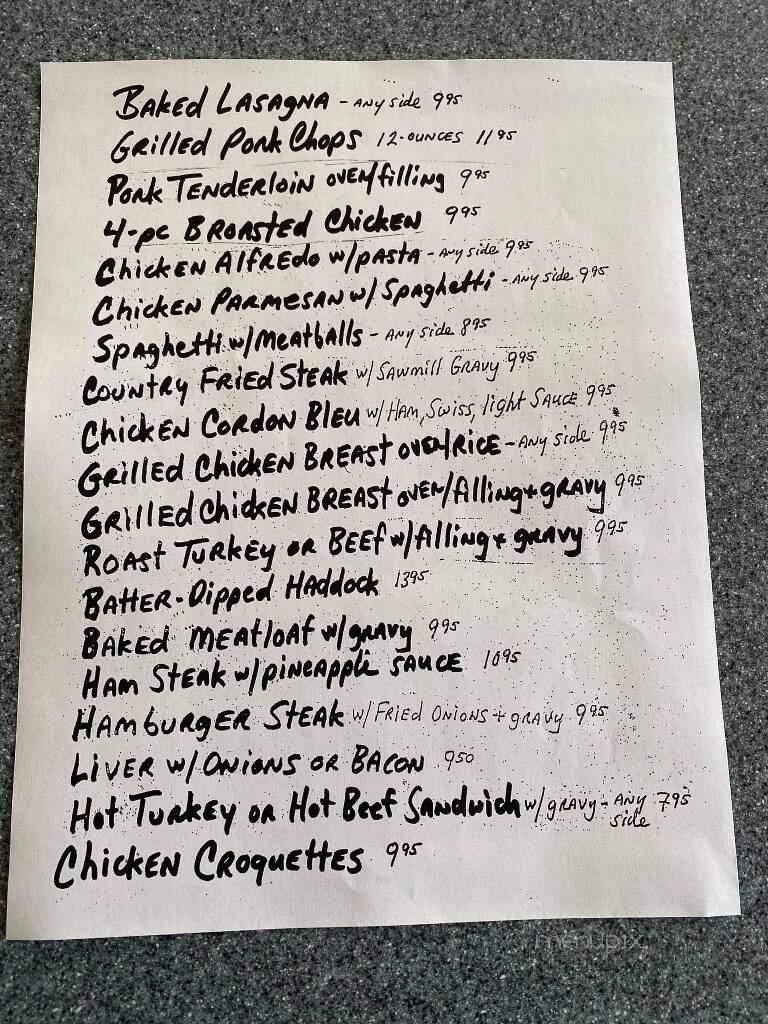 Baked Lasagna - Any side 9 95
Grilled Pork Chops 12-ounces 11 95
Pork Tenderloin over/filling 9 95
4-pc Broasted Chicken 9 95
Chicken Alfredo w/pasta - Any side 9 95
Chicken Parmesan w/ Spaghetti - Any side 9 95
Spaghetti w/Meatballs - Any side 8 95
Country Fried Steak w/ Sawmill Gravy 9 95
Chicken Cordon Bleu w/ Ham, Swiss, light Sauce 9 95
Grilled Chicken Breast over/Rice - Any side 9 95
Grilled Chicken Breast over/filling + gravy 9 95
Roast Turkey or Beef w/filling + gravy 9 95
Batter-Dipped Haddock 13 95
Baked Meatloaf w/gravy 9 95
Ham Steak w/pineapple sauce 10 95
Hamburger Steak w/ Fried Onions + gravy 9 95
Liver w/Onions or Bacon 9 50
Hot Turkey or Hot Beef Sandwich w/gravy - Any side 7 95
Chicken Croquettes 9 95
menupix